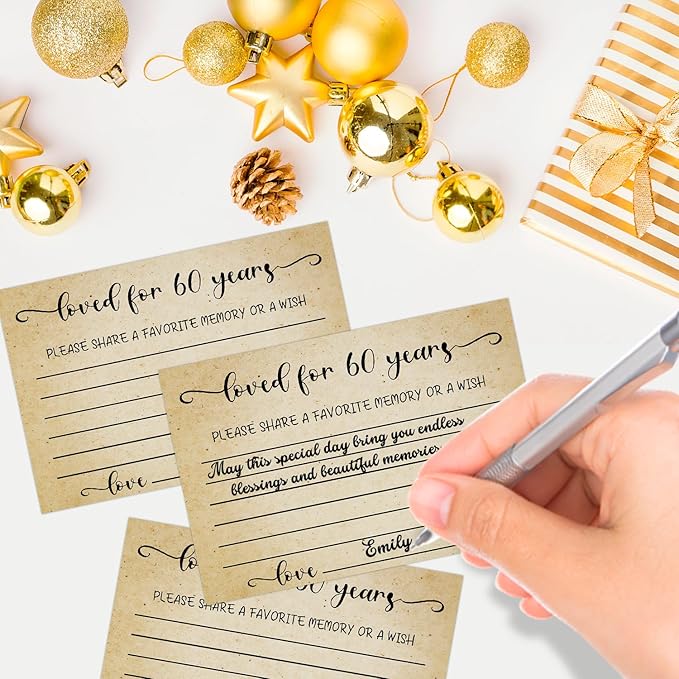 loved for 60 years
PLEASE SHARE A FAVORITE MEMORY OR A WISH
love
loved for 60 years
PLEASE SHARE A FAVORITE MEMORY OR A WISH
May this special day bring you endless
blessings and beautiful memories
Emily
love
60 years
PLEASE SHARE A FAVORITE MEMORY OR A WISH